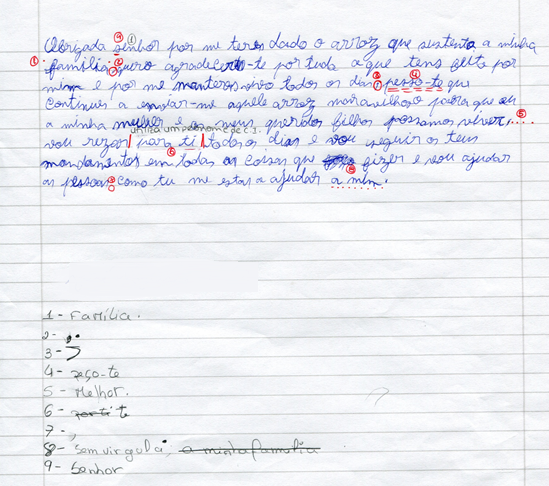 Obrigada senhor por me teres dado o arroz que sustenta a minha
família quero agradecer-te por tudo a que tens feito por
mim e por me manteres vivo todos os dias pesso-te que
continues a enviar-me aquele arroz maravilhoso para que eu
a minha mulher e os meus queridos filhos possamos viver.
utiliza um pronome de c.i.
vou rezar para ti todos os dias e vou seguir os teus
mandamentos em todas as coisas que fizer e vou ajudar
as pessoas como tu me estas a ajudar a mim.
1 - Família.
2 - .
3 -
4 - peço-te
5 - Melhor.
6 - te
7 - ,
8 - sem virgula, a minha familia
9 - Senhor